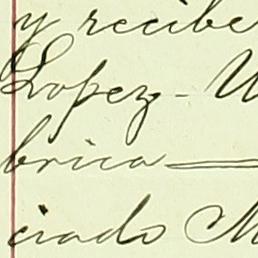 y recibe
Lopez - U
brica
ciado M